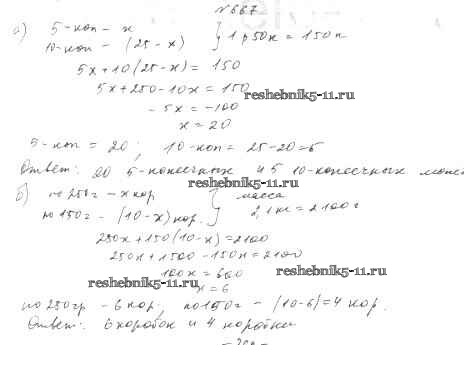 №667
а) 5-коп - x
10-коп - (25 - x) } 1 р 50к = 150к
5x + 10(25 - x) = 150
5x + 250 - 10x = 150
- 5x = -100
reshebnik5-11.ru
x = 20
5-коп = 20; 10-коп = 25 - 20 = 5
Ответ: 20 5-копеечных и 5 10-копеечных моне
reshebnik5-11.ru
б) по 250г - x кор } масса
по 150г - (10 - x) кор. 2,1 кг = 2100г
250x + 150(10 - x) = 2100
250x + 1500 - 150x = 2100
100x = 600
reshebnik5-11.ru
reshebnik5-11.ru
x = 6
по 250гр - 6 кор; по 150г - (10-6) = 4 кор.
Ответ: 6 коробок и 4 коробки